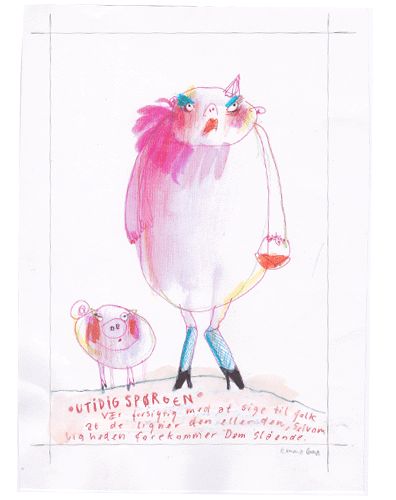 "UTIDIG SPØRGEN"
Vær forsigtig med at sige til folk
at de ligner den eller den, selvom
ligheden forekommer Dem slående.